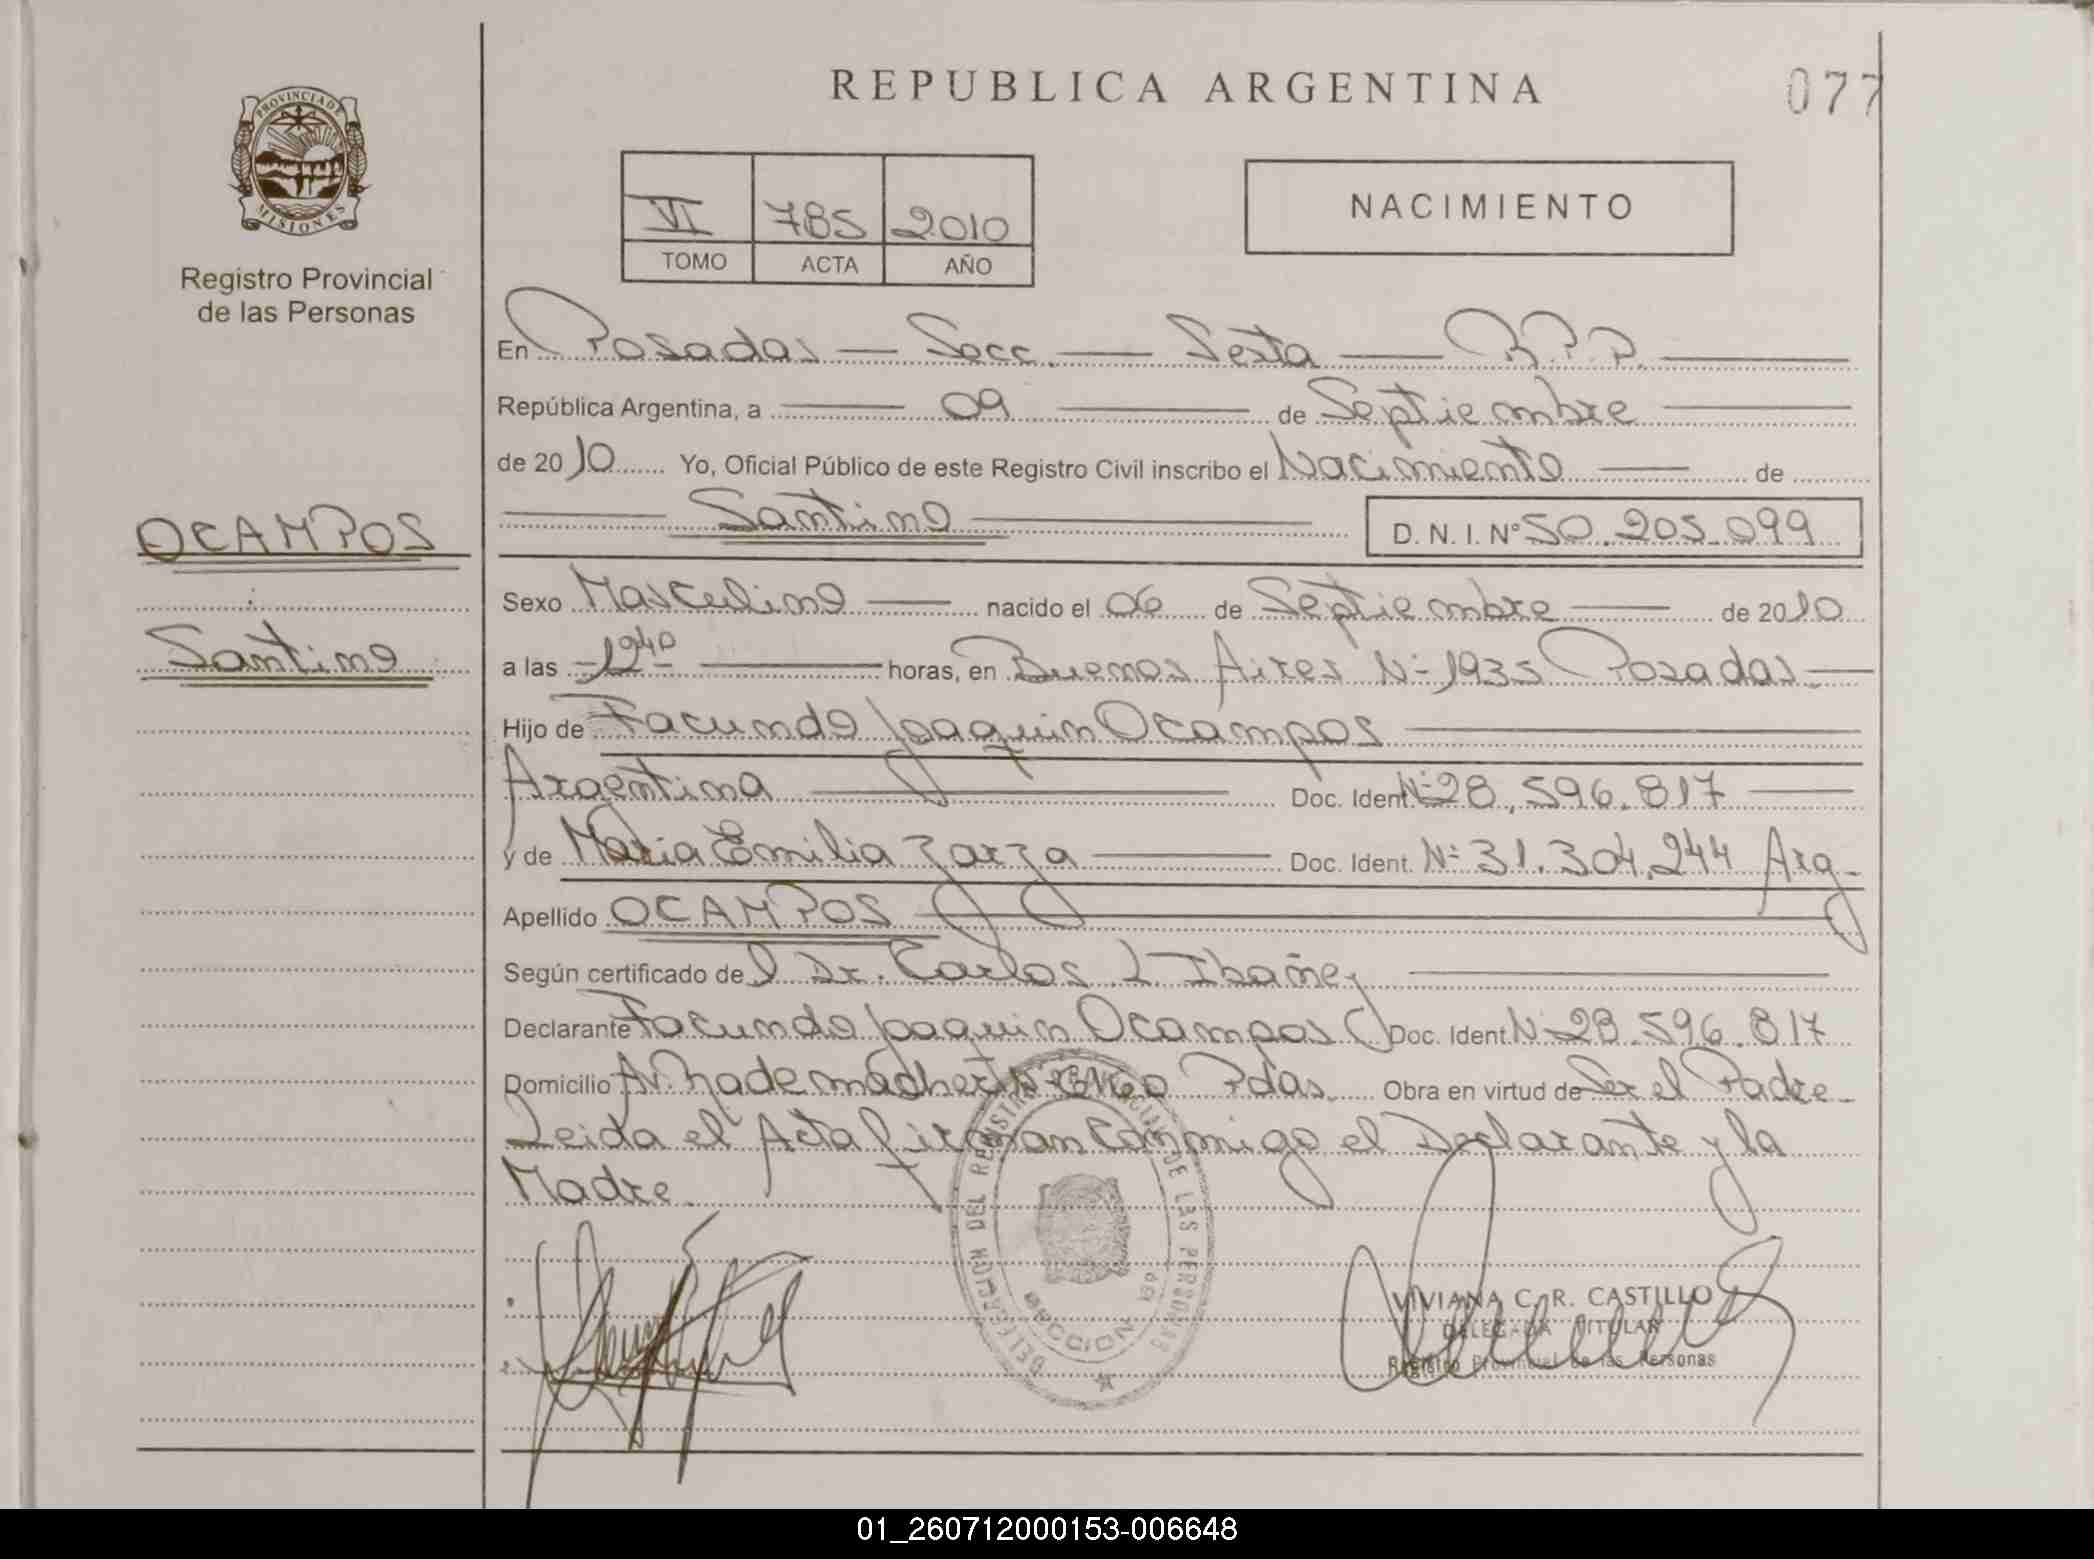 REPUBLICA ARGENTINA
077
PROVINCIA DE
MISIONES
Registro Provincial
de las Personas
VI 785 2010
TOMO ACTA AÑO
NACIMIENTO
En Posadas — Secc. — Sexta — R.P.P.
República Argentina, a — 09 — de Septiembre
de 2010 Yo, Oficial Público de este Registro Civil inscribo el Nacimiento — de
Santino
D. N. I. Nº 50.205.099
OCAMPOS
Santino
Sexo Masculino — nacido el 06 de Septiembre — de 2010
a las -12⁴⁰- — horas, en Buenos Aires Nº 1935 Posadas.
Hijo de Facundo Joaquin Ocampos
Argentina — Doc. Ident. Nº 28.596.817
y de Maria Emilia Zarza — Doc. Ident. Nº 31.304.244 Arg.
Apellido OCAMPOS
Según certificado del Dr. Carlos L. Ibañez
Declarante Facundo Joaquin Ocampos Doc. Ident. Nº 28.596.817
Domicilio Av. Pdas. Obra en virtud de Ser el Padre.
Leida el Acta firman Conmigo el Declarante y la
Madre.
DELEGACION DEL REGISTRO PROVINCIAL DE LAS PERSONAS
SECCION
VIVIANA C. R. CASTILLO
DELEGADA TITULAR
Registro Provincial de las Personas
01_260712000153-006648